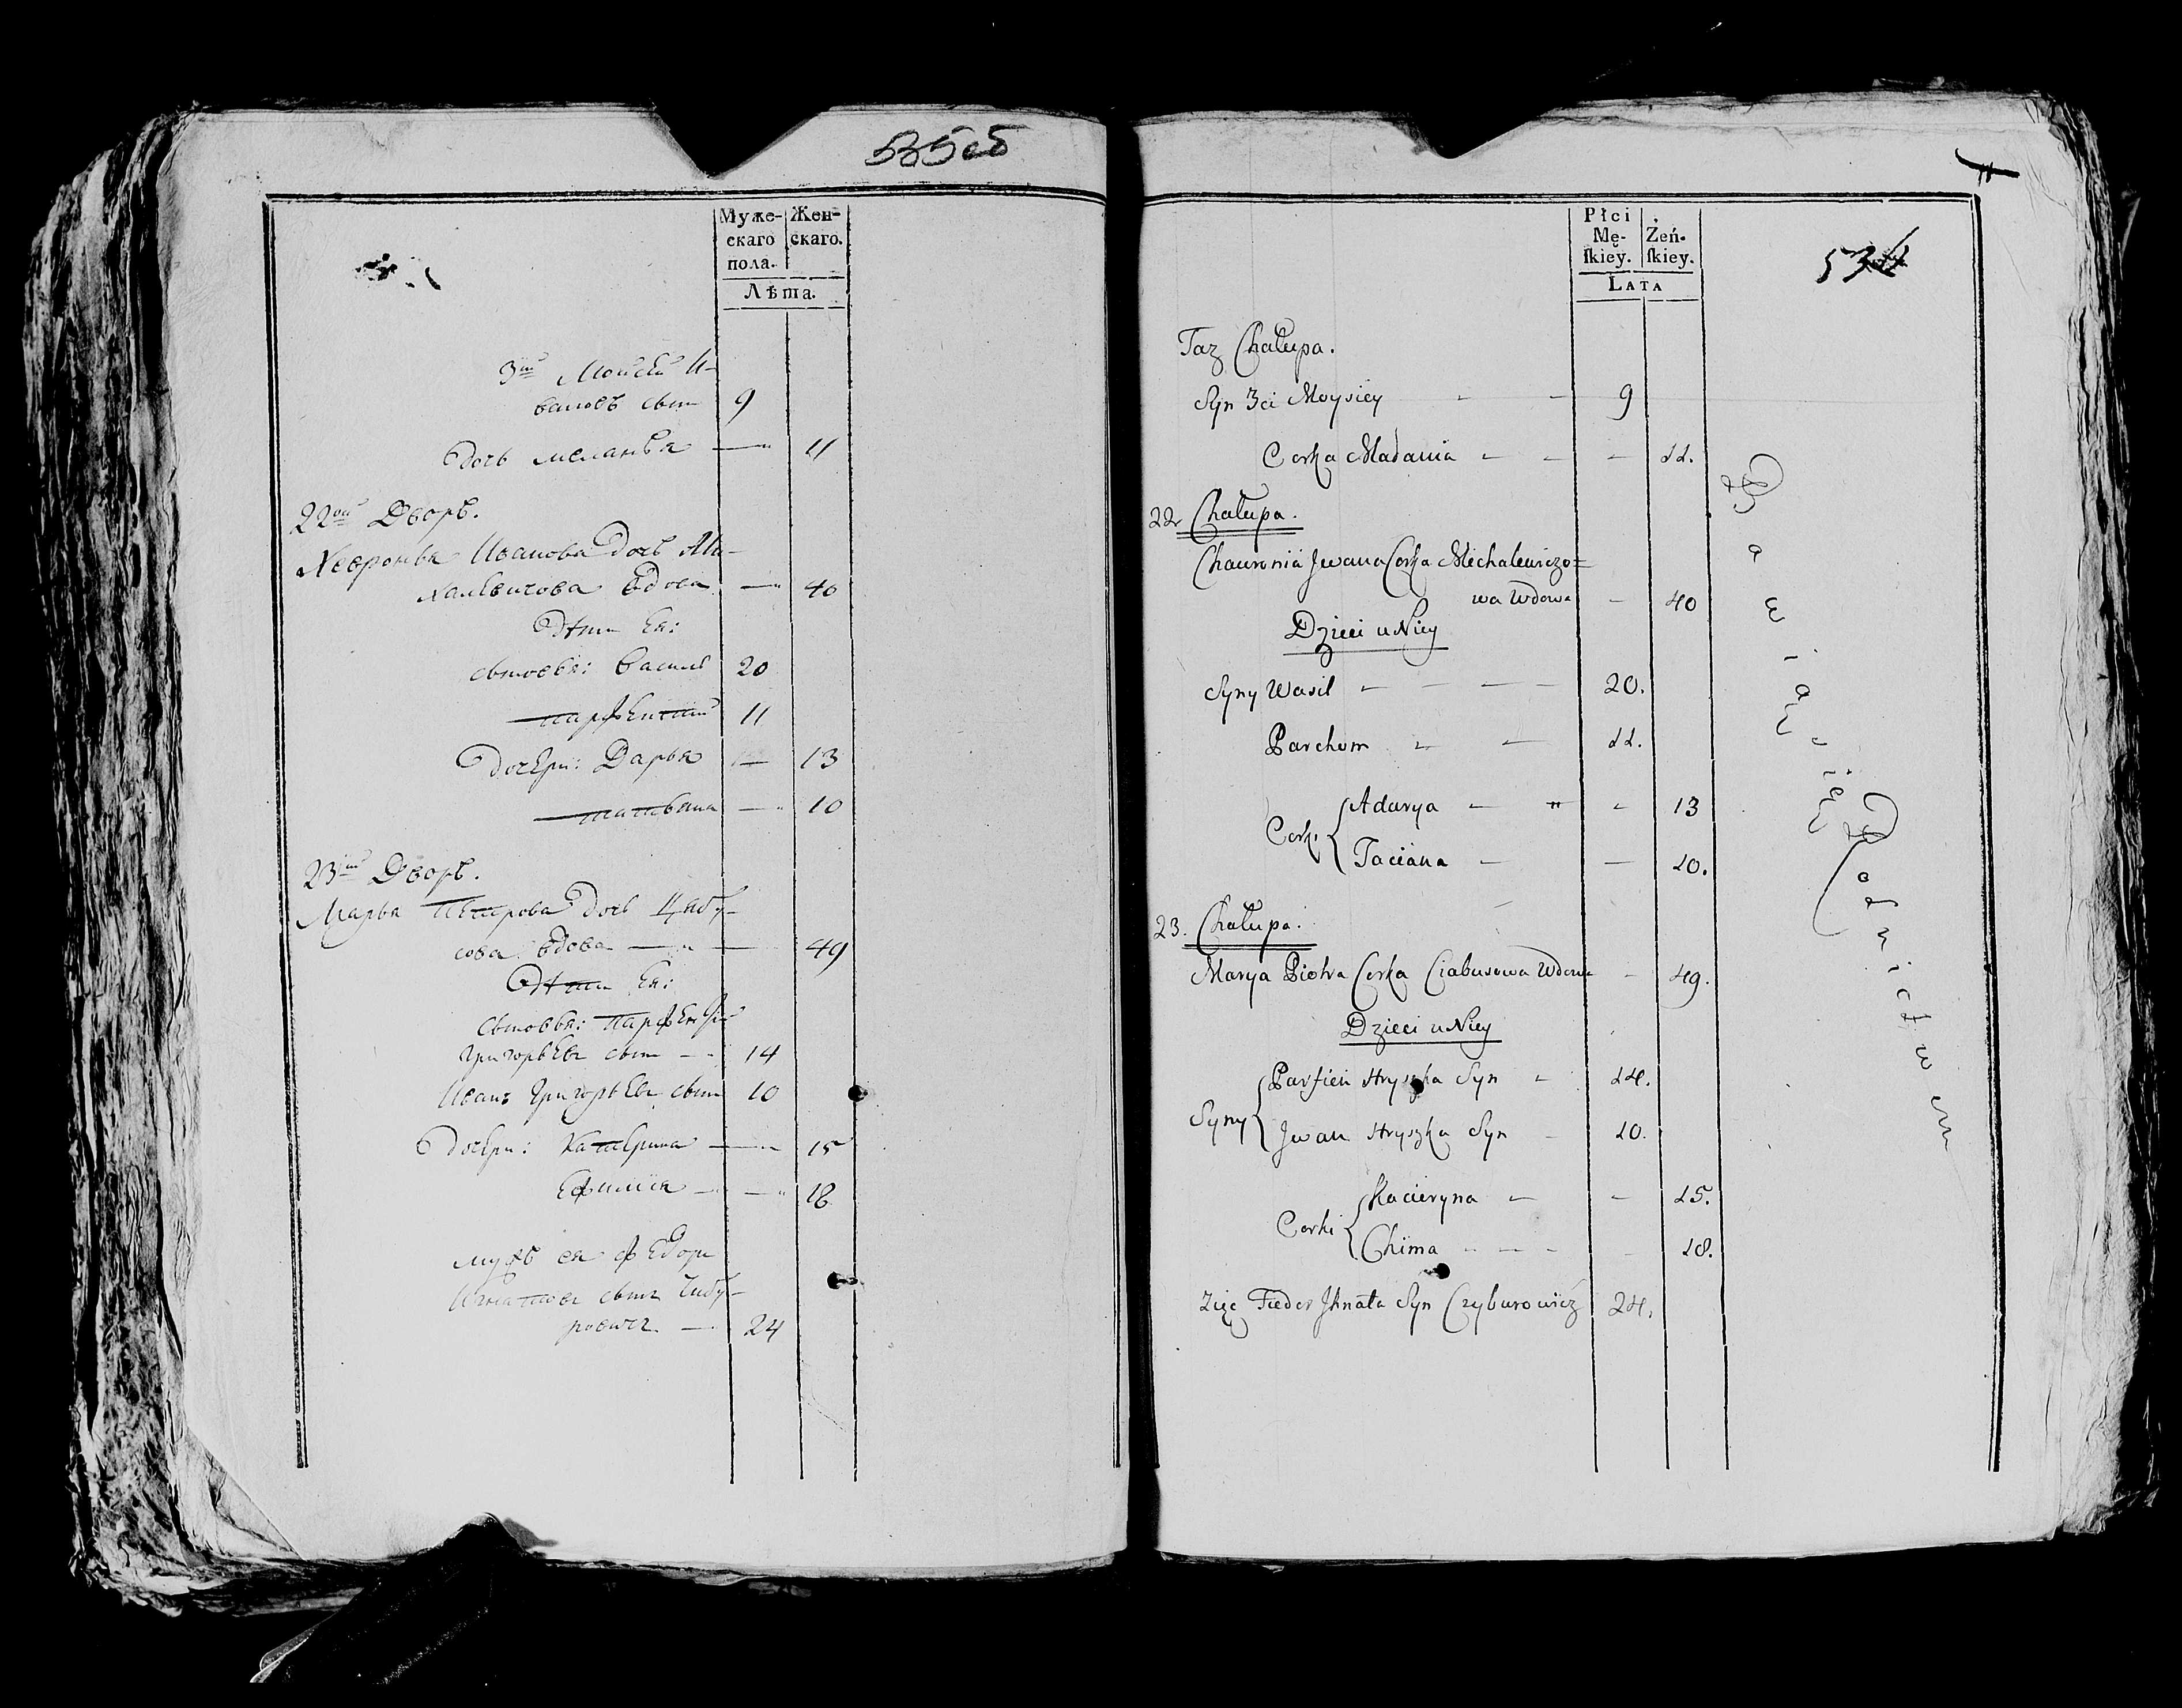 535об
Муже-
скаго
пола.
Жен-
скаго.
Лѣта.
3ій Мойсей И-
вановъ сынъ 9
дочь меланья — 11
22ой Дворъ.
Хевронья Иванова дочь Ми-
халевичова вдова — 40
Дѣти ея:
сыновья: Василь 20
парфентій 11
дочери: Дарья — 13
татьяна — 10
23ій Дворъ.
Марья Петрова дочь Цябу-
сова вдова — 49
Дѣти ея:
сыновья: парфентій
григорьевъ сынъ - 14
Иванъ григорьевъ сынъ 10
дочери: Катерина — 15
Ефимія — 18
мужъ ея федоръ
Игнатовъ сынъ Чибу-
ровичъ — 24
Płci
Mę-
ſkiey.
Żeń-
ſkiey.
LATA
Taz Chałupa.
Syn 3ci Moysiey - - 9
Corka Madania - - - 11.
22 Chałupa.
Chauronia Jwana Corka Michalewiczo=
wa Wdowa - 40
Dzieci u Niey
Syny Wasil - - - - 20.
Parchom - - 11.
Corki Adarya - - - 13
Taciana - - 10.
23. Chałupa.
Marya Piotra Corka Ciabusowa Wdowa - 49.
Dzieci u Niey
Syny Parfien Hryszka Syn - 14.
Jwan Hryszka Syn - 10.
Corki Kacieryna - - 15.
Chima - - - - 18.
Zięć Fieder Jhnata Syn Czyburowicz 24.